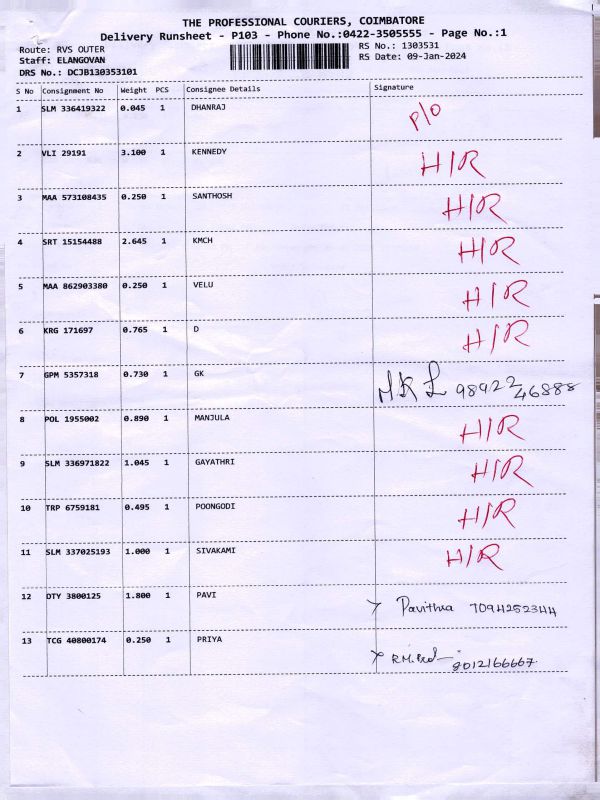 THE PROFESSIONAL COURIERS, COIMBATORE
Delivery Runsheet - P103 - Phone No.:0422-3505555 - Page No.:1
Route: RVS OUTER RS No.: 1303531
Staff: ELANGOVAN RS Date: 09-Jan-2024
DRS No.: DCJB130353101
S No Consignment No Weight PCS Consignee Details Signature
1 SLM 336419322 0.045 1 DHANRAJ P/O
2 VLI 29191 3.100 1 KENNEDY H/R
3 MAA 573108435 0.250 1 SANTHOSH H/R
4 SRT 15154488 2.645 1 KMCH H/R
5 MAA 862903380 0.250 1 VELU H/R
6 KRG 171697 0.765 1 D H/R
7 GPM 5357318 0.730 1 GK 98922 46888
8 POL 1955002 0.890 1 MANJULA H/R
9 SLM 336971822 1.045 1 GAYATHRI H/R
10 TRP 6759181 0.495 1 POONGODI H/R
11 SLM 337025193 1.000 1 SIVAKAMI H/R
12 OTY 3800125 1.800 1 PAVI Pavithra 7094252344
13 TCG 40800174 0.250 1 PRIYA 8012166667